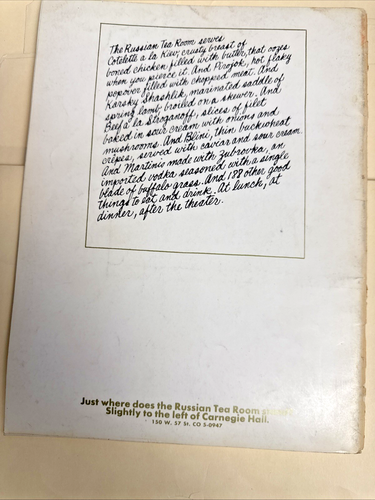 The Russian Tea Room serves
Cotelette a la Kiev, crusty breast of
boned chicken filled with butter, that oozes
when you pierce it. And Pirojok, hot flaky
popover filled with chopped meat. And
Karsky Shashlik, marinated saddle of
spring lamb, broiled on a skewer. And
Beef a la Stroganoff, slices of filet
baked in sour cream with onions and
mushrooms. And Blini, thin buckwheat
crêpes, served with caviar and sour cream.
And Martinis made with Zubrovka, an
imported vodka seasoned with a single
blade of buffalo grass. And 188 other good
things to eat and drink. At lunch, at
dinner, after the theater.
Just where does the Russian Tea Room
Slightly to the left of Carnegie Hall.
150 W. 57 St. CO 5-0947